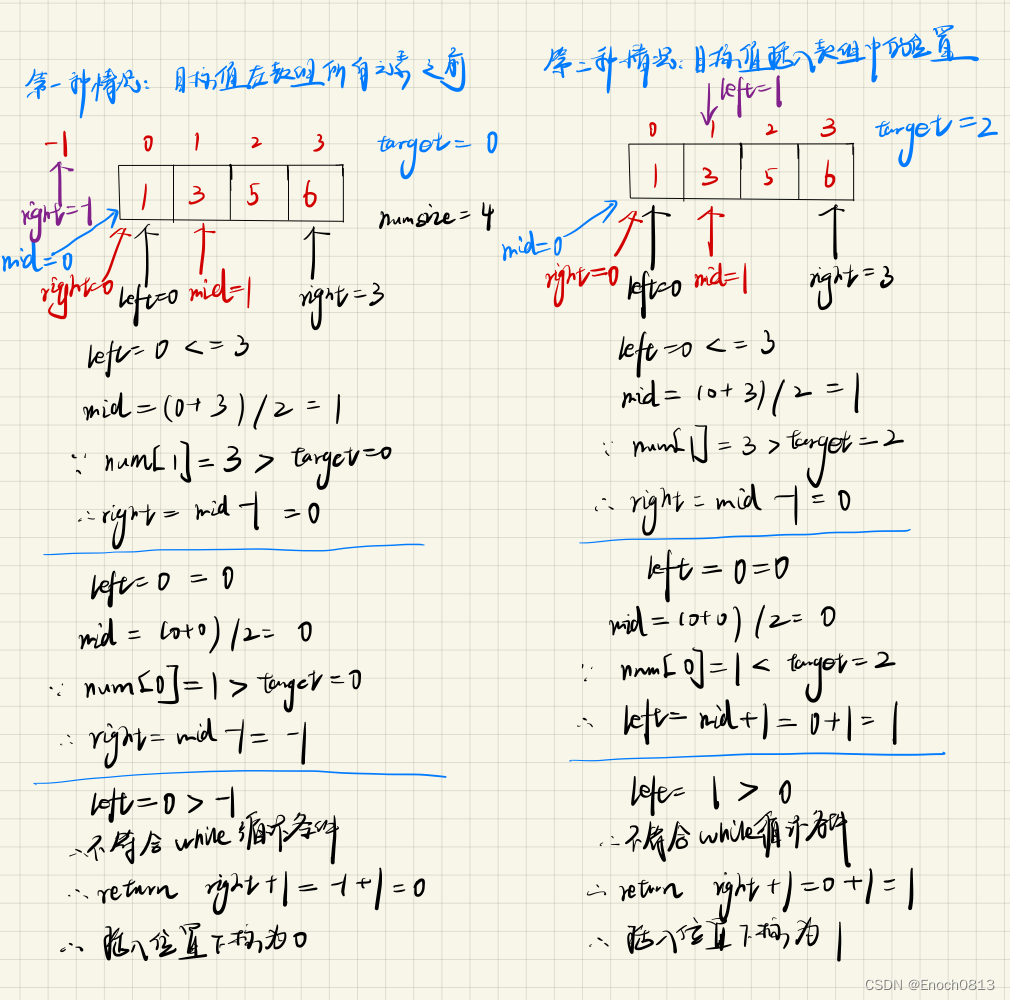 第一种情况：目标值在数组所有元素之前
-1 0 1 2 3
target = 0
1 3 5 6
right=-1
numsize = 4
mid=0
right=0
left=0
mid=1
right=3
left=0 <= 3
mid=(0+3)/2=1
∵ num[1]=3 > target=0
∴right=mid-1=0
left=0=0
mid=(0+0)/2=0
∵ num[0]=1>target=0
∴ right=mid-1=-1
left=0>-1
∴不符合while循环条件
∴return right+1=-1+1=0
∴ 插入位置下标为0
第二种情况：目标值插入数组中的位置
left=1
0 1 2 3
target=2
1 3 5 6
mid=0
right=0
left=0
mid=1
right=3
left=0 <= 3
mid=(0+3)/2=1
∵ num[1]=3>target=2
∴ right=mid-1=0
left=0=0
mid=(0+0)/2=0
∵ num[0]=1<target=2
∴ left=mid+1=0+1=1
left=1>0
∴不符合while循环条件
∴return right+1=0+1=1
∴ 插入位置下标为1
CSDN @Enoch0813